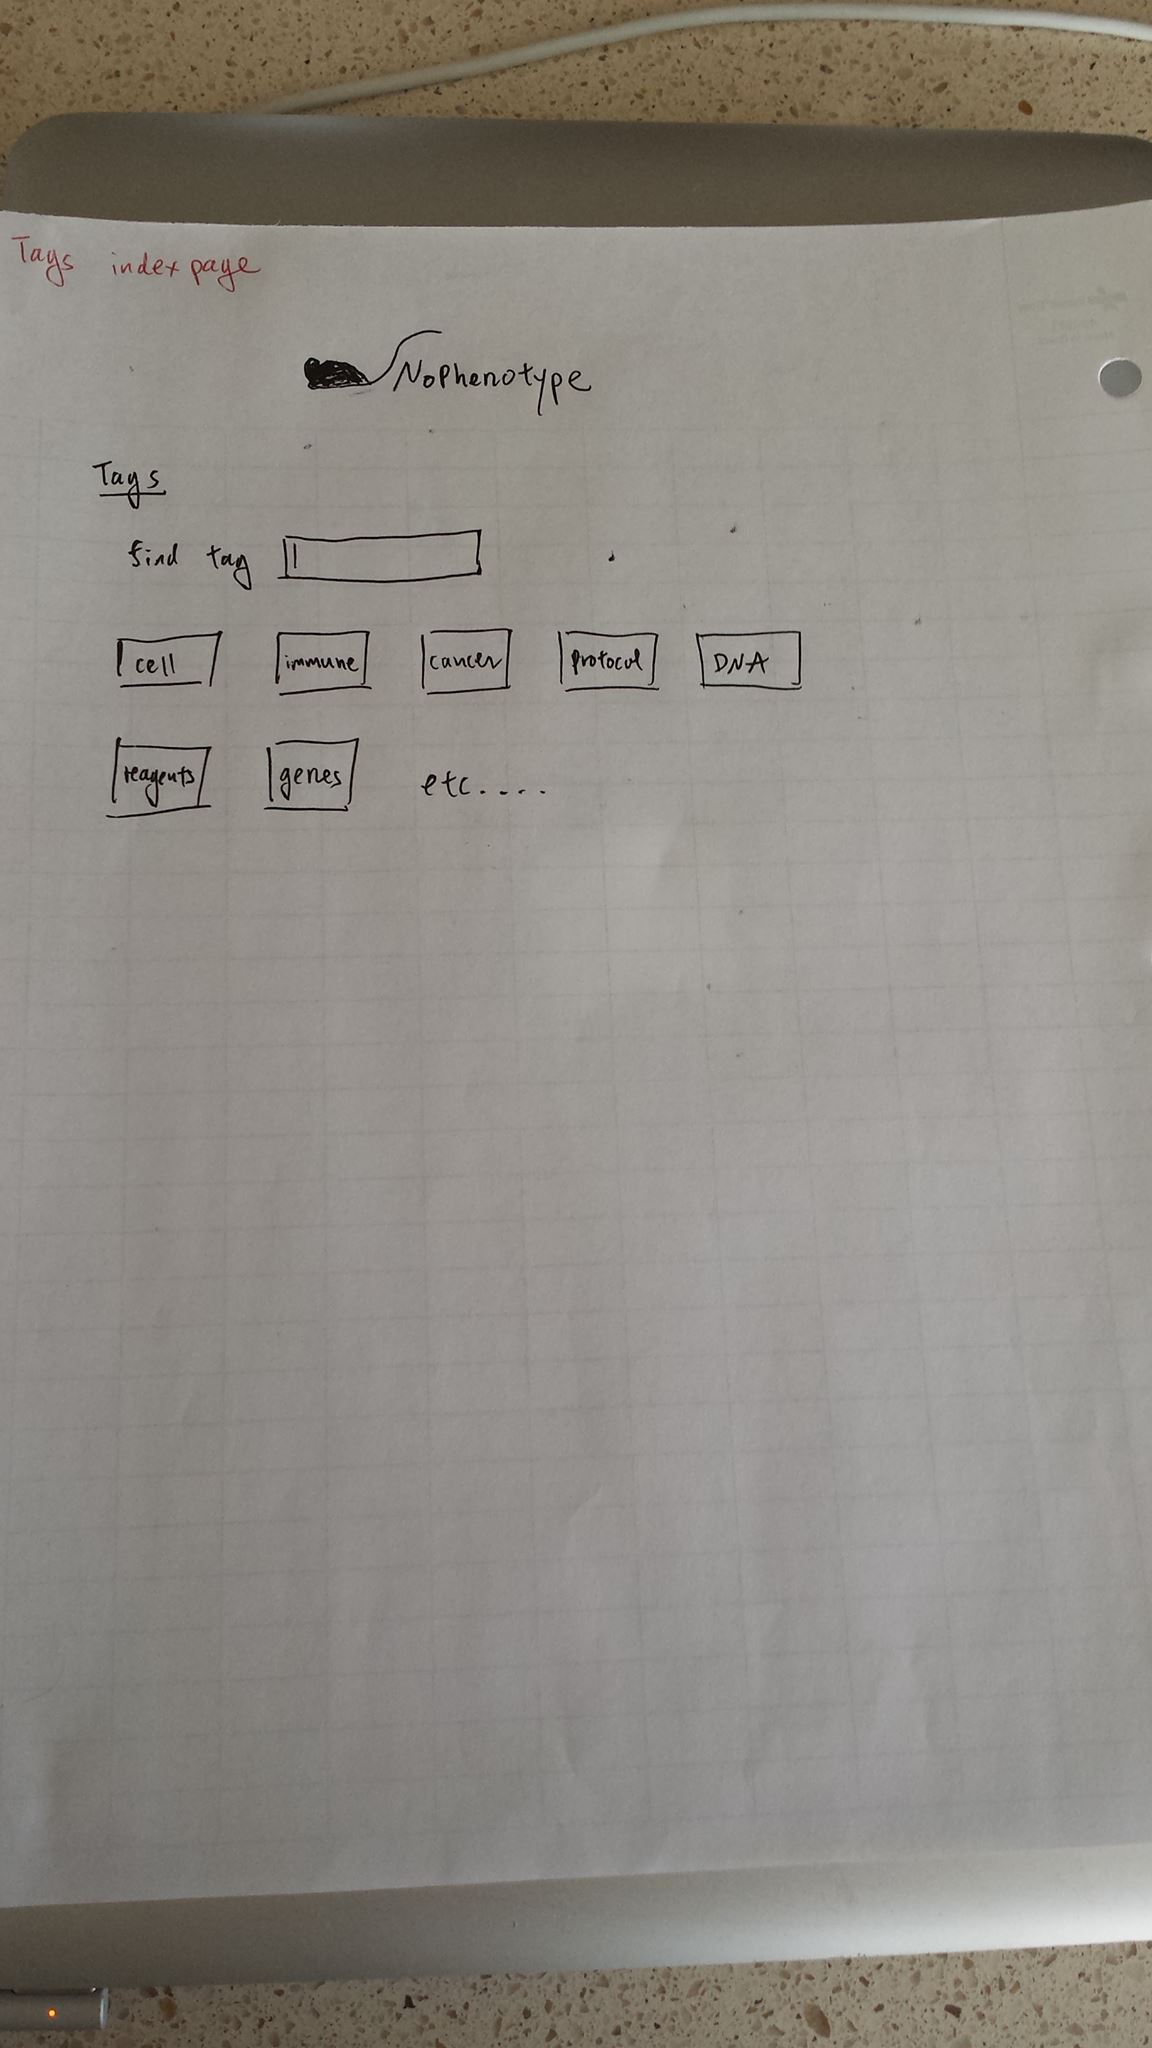 Tags index page
NoPhenotype
Tags
find tag
cell immune cancer protocol DNA
reagents genes etc....